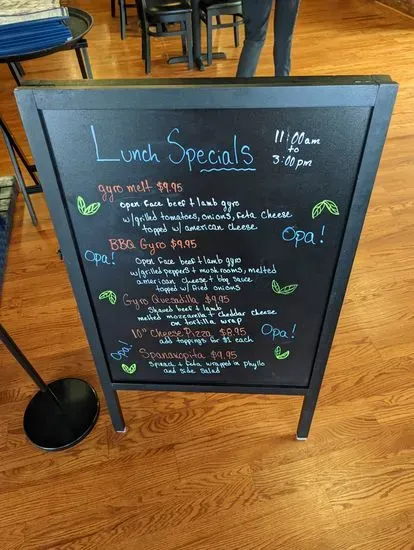 Lunch Specials
11:00am
to
3:00pm
gyro melt $9.95
open face beef + lamb gyro
w/grilled tomatoes, onions, feta cheese
topped w/ american cheese
Opa!
BBQ Gyro $9.95
Opa!
Open face beef + lamb gyro
w/grilled peppers + mushrooms, melted
american cheese + bbq sauce
topped w/ fried onions
Gyro Quesadilla $9.95
Shaved beef + lamb
melted mozzarella + cheddar cheese
on tortilla wrap
10" Cheese Pizza $8.95
Opa!
add toppings for $1 each
Opa!
Spanakopita $9.95
Spinach + feta wrapped in phyllo
and side salad